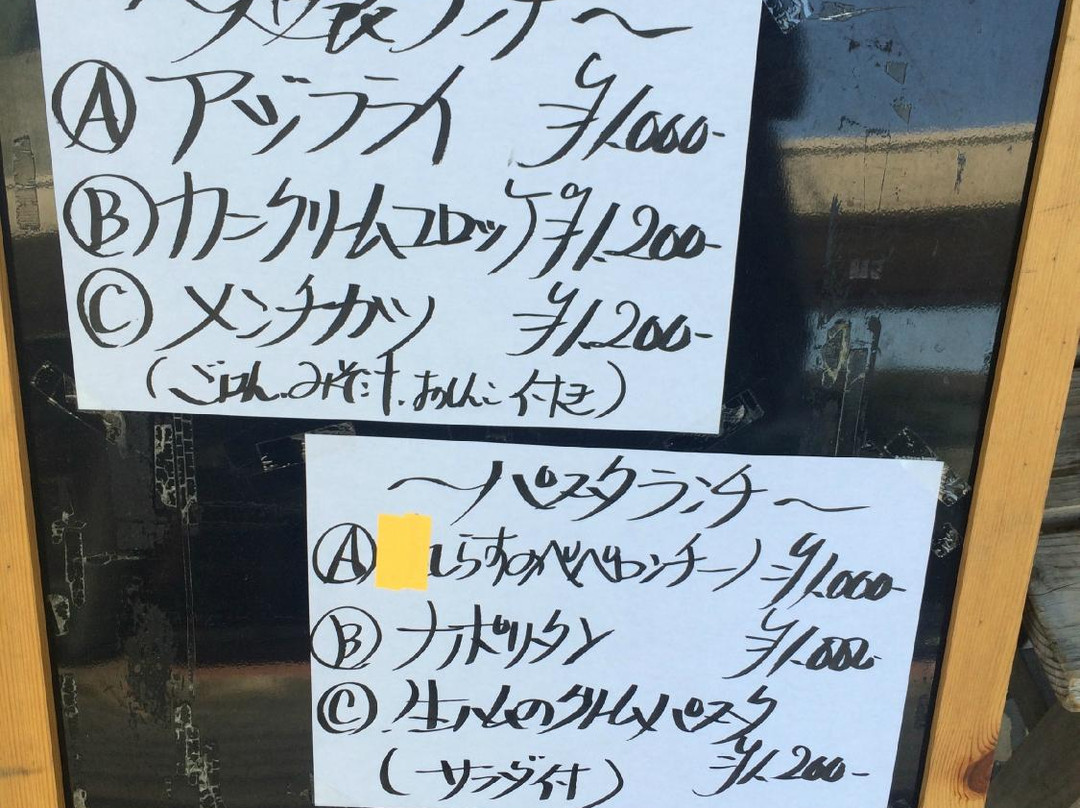 ランチ〜
Ⓐ アジフライ ¥1,000-
Ⓑ カニクリームコロッケ ¥1,200-
Ⓒ メンチカツ ¥1,200-
(ごはん.みそ汁.おしんこ付き)
〜パスタランチ〜
Ⓐ しらすのペペロンチーノ ¥1,000-
Ⓑ ナポリタン ¥1,000-
Ⓒ 生ハムのクリームパスタ
(サラダ付) ¥1,200-